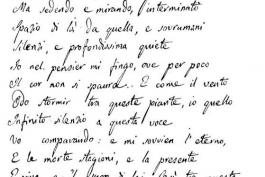 Ma sedendo e mirando, l'interminato
Spazio di là da quella, e sovrumani
Silenzi, e profondissima quiete
Io nel pensier mi fingo, ove per poco
Il cor non si spaura. E come il vento
Odo stormir tra queste piante, io quello
Infinito silenzio a questa voce
Vo comparando: e mi sovvien l'eterno,
E le morte stagioni, e la presente
E viva, e il